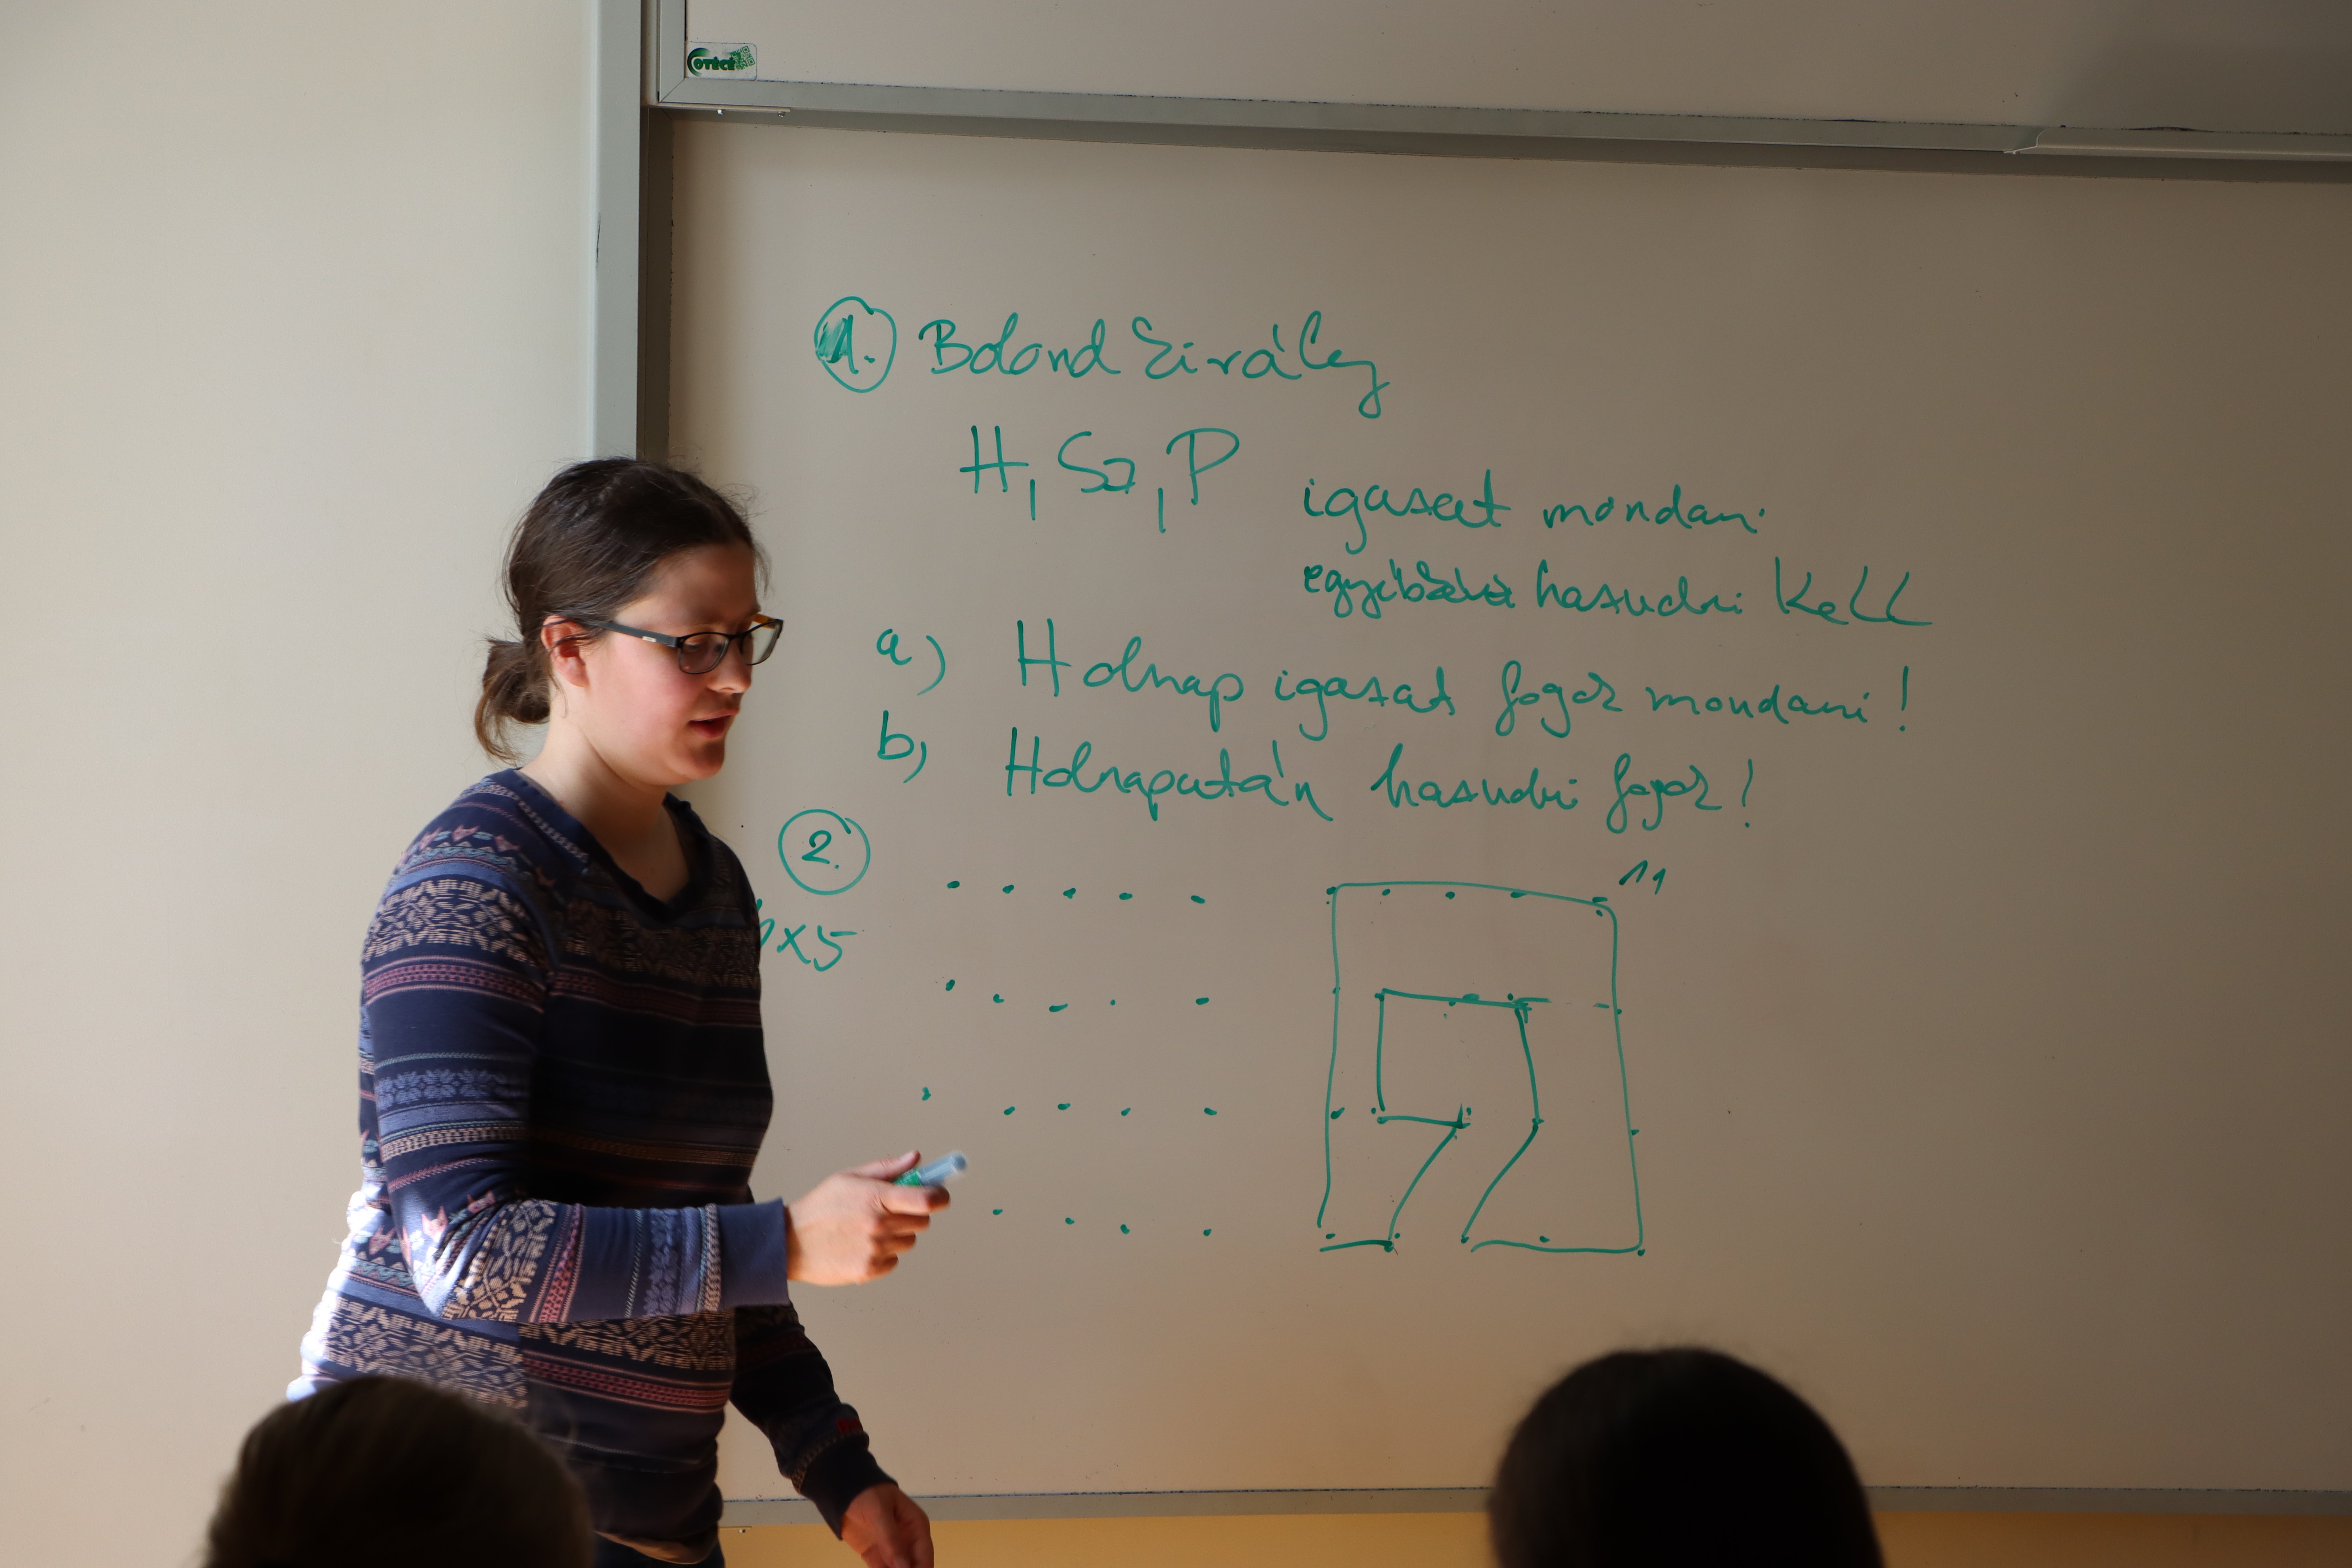 OTÉCÉ
1. Bolond király
H, Sz, P
igazat mondani
egyébként hazudni kell
a) Holnap igazat fogok mondani!
b) Holnapután hazudni fogok!
2.
11
x5